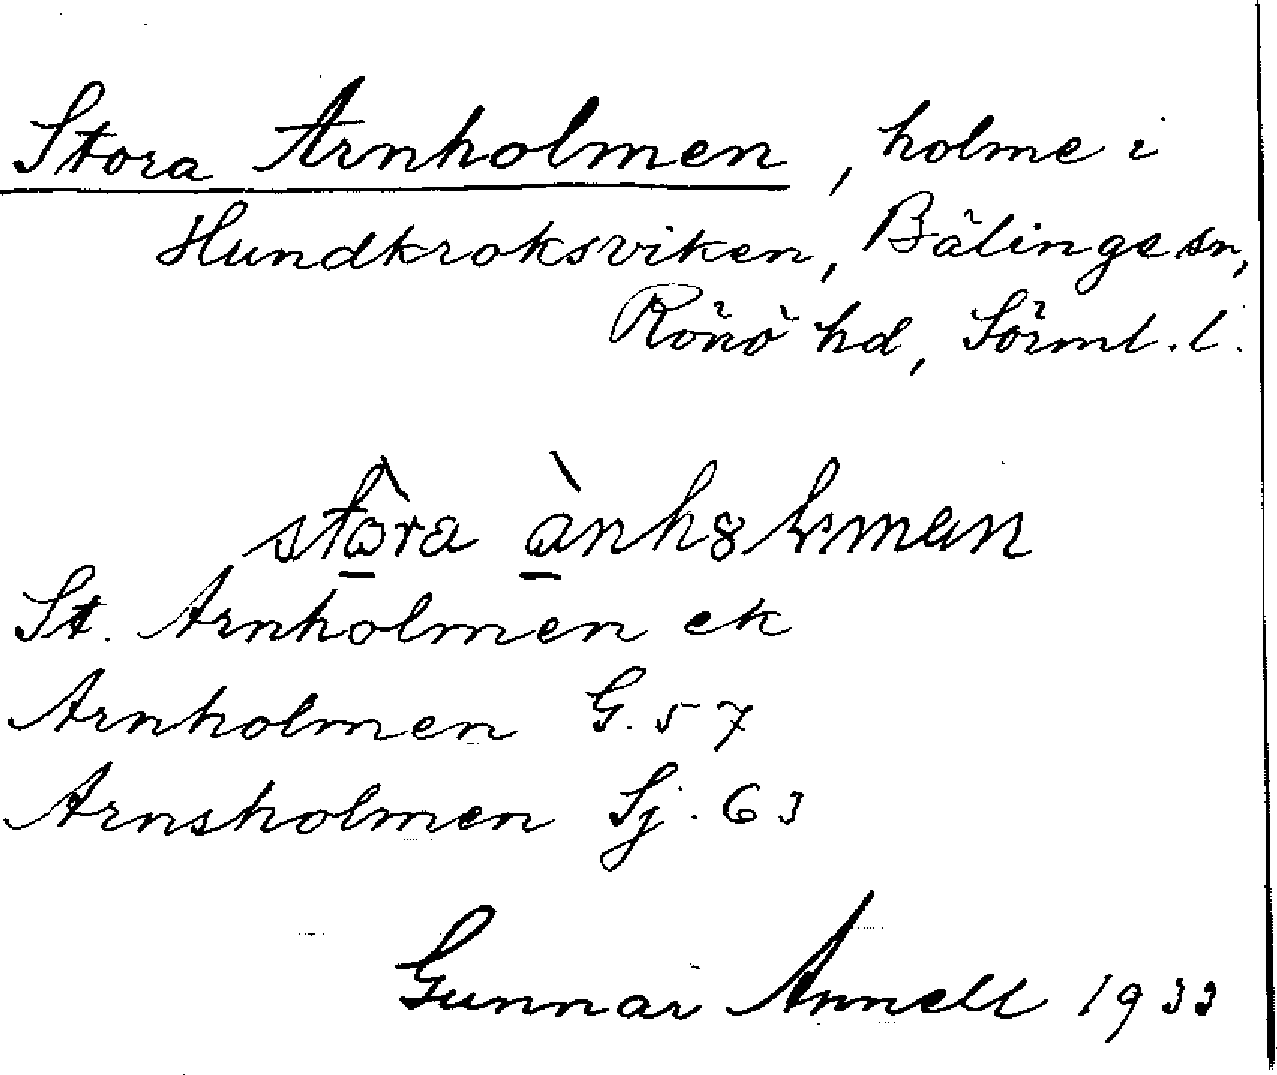 Stora Arnholmen, holme i
Hundkroksviken, Bälinge sn,
Rönö hd, Sörml. l.
St. Arnholmen ek
Arnholmen G. 57
Arnsholmen Sj. 63
Gunnar Annell 1933